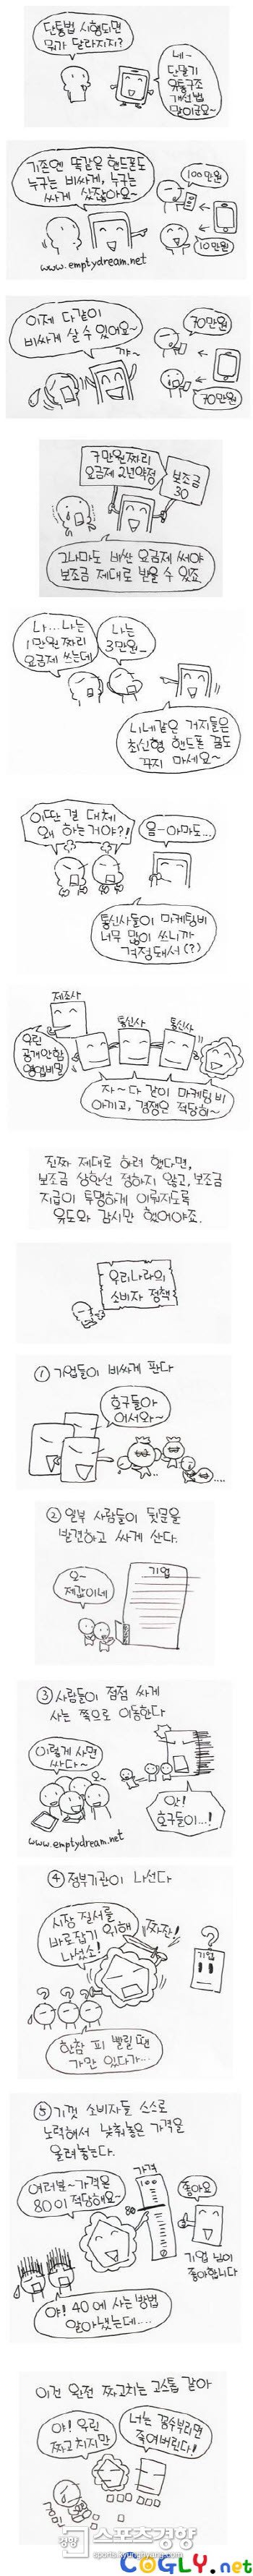 단통법 시행되면
뭐가 달라지지?
네~
단말기
유통구조
개선법
말이군요~
기존엔 똑같은 핸드폰도
누구는 비싸게, 누구는
싸게 샀잖아요~
100만원
10만원
www.emptydream.net
이제 다같이
비싸게 살 수 있어요~
까~
70만원
70만원
7만원짜리
요금제 2년약정
보조금
30
그나마도 비싼 요금제 써야
보조금 제대로 받을 수 있죠
나...나는
1만원 짜리
요금제 쓰는데
나는
3만원_
니네같은 거지들은
최신형 핸드폰 꿈도
꾸지 마세요~
이딴 걸 대체
왜 하는거야?!
음-아마도...
통신사들이 마케팅비
너무 많이 쓰니까
걱정돼서(?)
제조사
통신사
통신사
우린
공개안함
영업비밀
자~ 다 같이 마케팅비
아끼고, 경쟁은 적당히~
진짜 제대로 하려 했다면,
보조금 상한선 정하지 않고, 보조금
지급이 투명하게 이뤄지도록
유도와 감시만 했어야죠.
우리나라의
소비자 정책
① 기업들이 비싸게 판다
호구들아
어서와~
② 일부 사람들이 뒷문을
발견하고 싸게 산다.
오~
제값이네
기업
③ 사람들이 점점 싸게
사는 쪽으로 이동한다
이렇게 사면
싸다~
앗!
호구들이...!
www.emptydream.net
④ 정부기관이 나선다
시장 질서를
바로잡기 위해
나섰소!
짜잔!
기업
한참 피 빨릴 땐
가만 있다가...
⑤ 기껏 소비자들 스스로
노력해서 낮춰놓은 가격을
올려놓는다.
여러분~ 가격은
80이 적당해요~
가격
100
80
좋아요
기업 님이
좋아합니다
야! 40에 사는 방법
알아냈는데....
이건 완전 짜고치는 고스톱 같아
야! 우린
짜고 치지만
너는 꼼수부리면
죽여버린다!
국민
경향
스포츠경향
sports.kyunghyang.com
COGLY.net